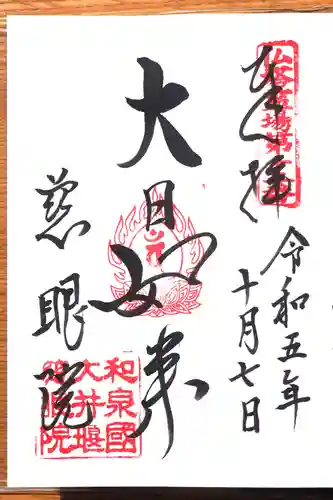 奉拝
令和五年
十月七日
大日如来
慈眼院
和泉國
大井堰
慈眼院